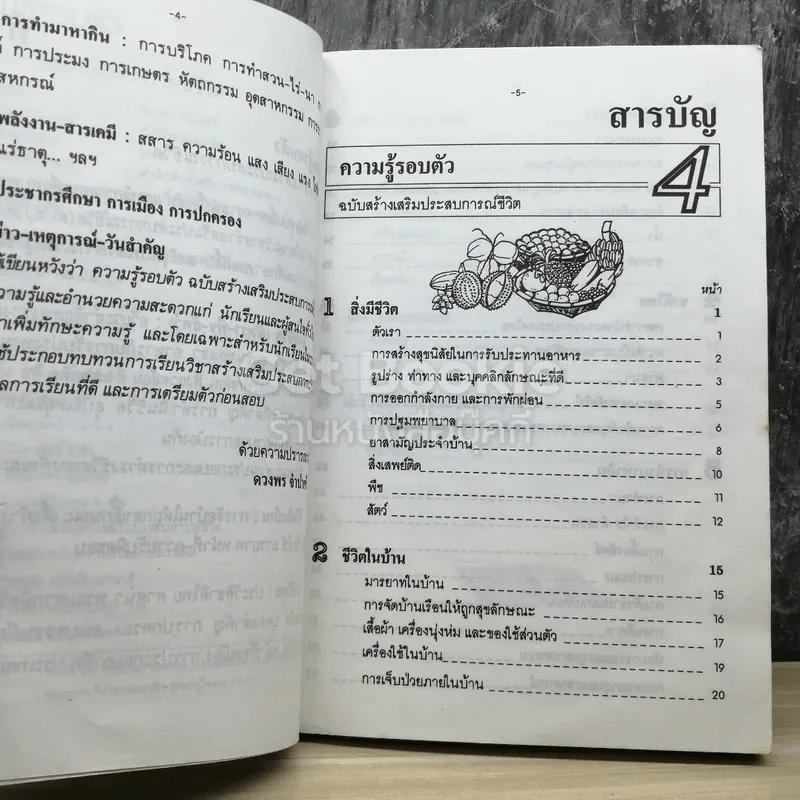 -4-
การทำมาหากิน : การบริโภค การทำสวน-ไร่-นา
การประมง การเกษตร หัตถกรรม อุตสาหกรรม
สหกรณ์
พลังงาน-สารเคมี : สสาร ความร้อน แสง เสียง แรง
แร่ธาตุ... ฯลฯ
ประชากรศึกษา การเมือง การปกครอง
ข่าว-เหตุการณ์-วันสำคัญ
ผู้เขียนหวังว่า ความรู้รอบตัว ฉบับสร้างเสริมประสบการณ์
ความรู้และอำนวยความสะดวกแก่ นักเรียนและผู้สนใจทั่วไป
เพิ่มทักษะความรู้ และโดยเฉพาะสำหรับนักเรียน
ใช้ประกอบทบทวนการเรียนวิชาสร้างเสริมประสบการณ์
ผลการเรียนที่ดี และการเตรียมตัวก่อนสอบ
ด้วยความปรารถนา
ดวงพร
-5-
สารบัญ
ความรู้รอบตัว 4
ฉบับสร้างเสริมประสบการณ์ชีวิต
หน้า
1 สิ่งมีชีวิต 1
ตัวเรา 1
การสร้างสุขนิสัยในการรับประทานอาหาร 2
รูปร่าง ท่าทาง และบุคคลิกลักษณะที่ดี 4
การออกกำลังกาย และการพักผ่อน 5
การปฐมพยาบาล 6
ยาสามัญประจำบ้าน 8
สิ่งเสพย์ติด 10
พืช 11
สัตว์ 12
2 ชีวิตในบ้าน 15
มารยาทในบ้าน 15
การจัดบ้านเรือนให้ถูกสุขลักษณะ 16
เสื้อผ้า เครื่องนุ่งห่ม และของใช้ส่วนตัว 17
เครื่องใช้ในบ้าน 19
การเจ็บป่วยภายในบ้าน 20
ร้านหนังสือบุ๊คกี้